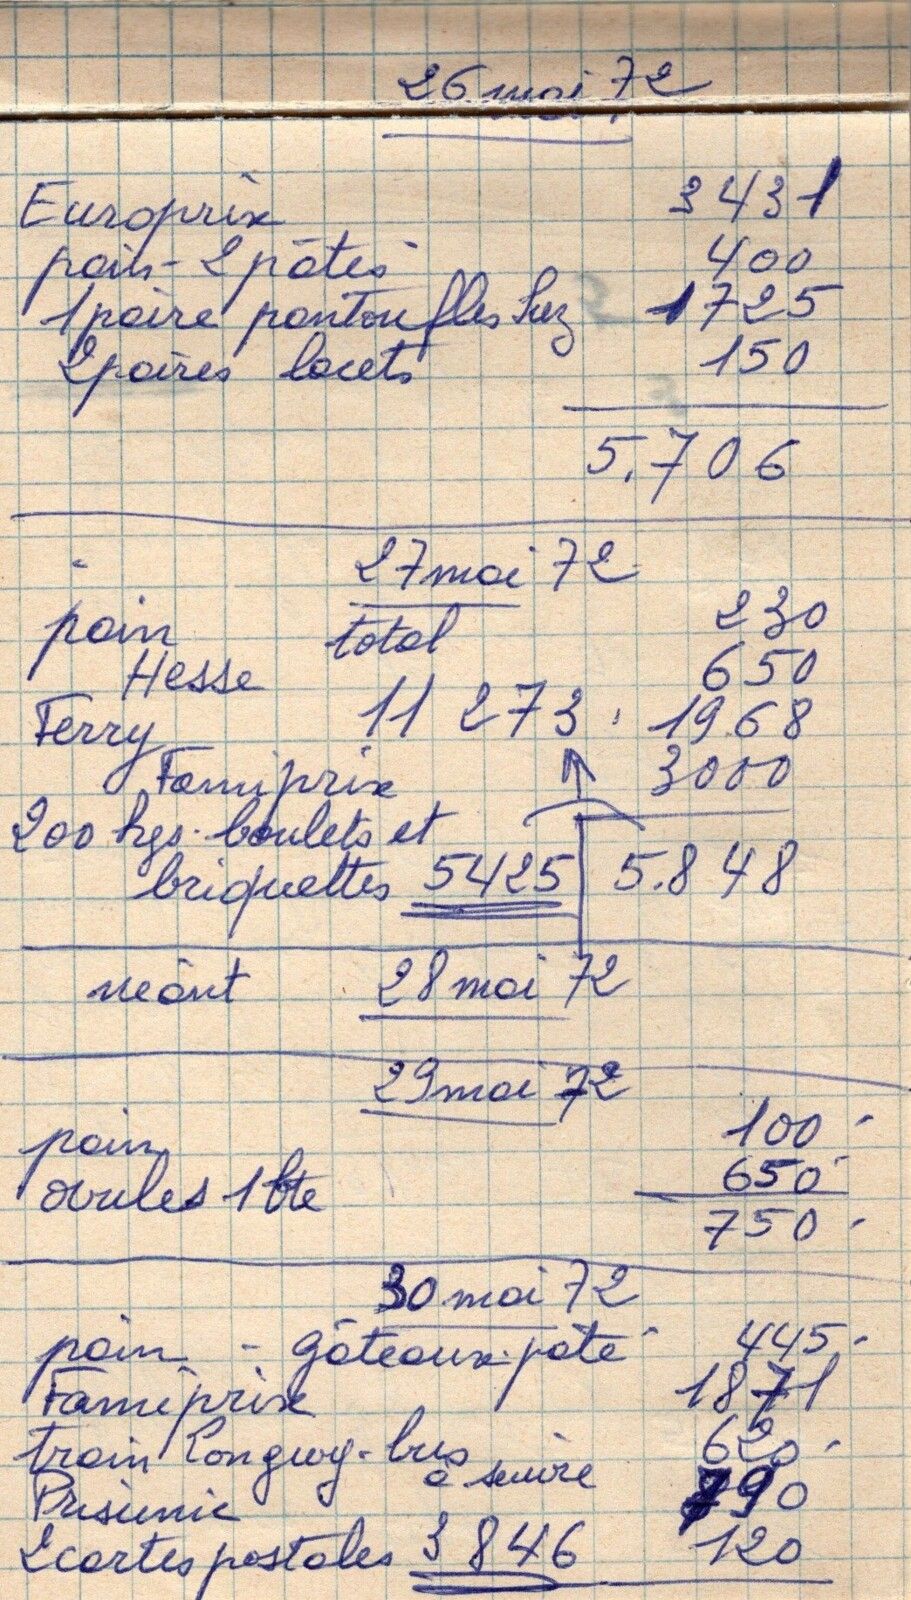 26 mai 72
Europrix 3431
pain - 2 pâtés 400
1 paire pantoufles Suz 1725
2 paires lacets 150
5.706
27 mai 72
pain total 230
Hesse 650
Ferry 11 273 1968
Famiprix 3000
200 kgs. boulets et
briquettes 5425 5.848
néant 28 mai 72
29 mai 72
pain 100
ovules 1 bte 650
750
30 mai 72
pain - gâteaux - pâté 445
Famiprix 1871
train Longwy - bus 620
à suivre
Prisunic 790
2 cartes postales 3846 120